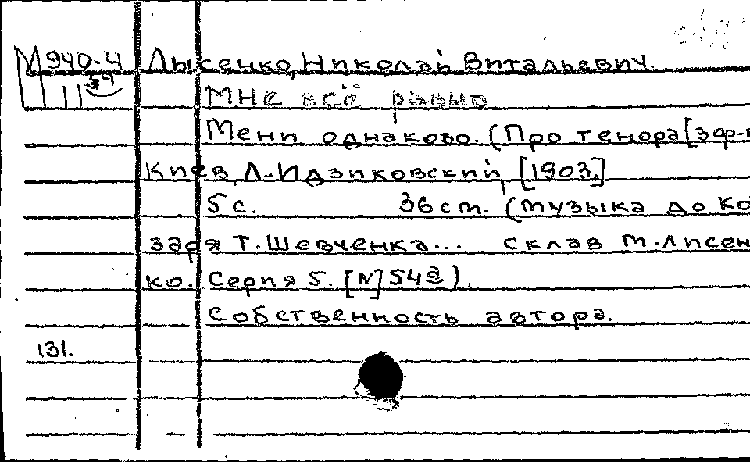 М940-4 Лысенко, Николай Витальевич.
34 Мне всё равно
Мені однаково. (Про тенора[зар-
Киев, Л. Идзиковский, [1903.]
5 с. 36 cm. (Музыка до Ко
заря Т. Шевченка... склав М. Лисен
ко. Серия 5. [N] 54a).
Собственность автора.
131.